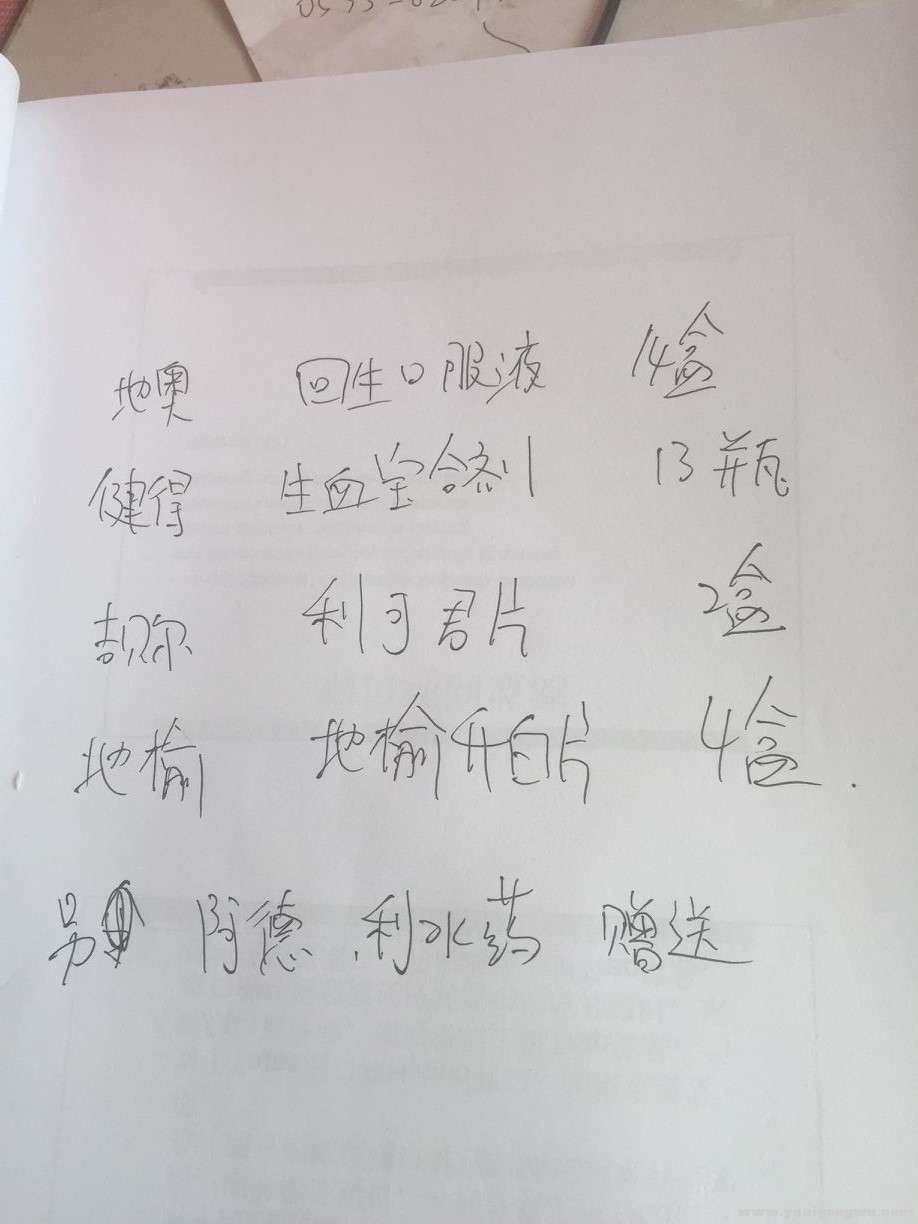 地奥 回生口服液 14盒
健得 生血宝合剂 13瓶
吉贝尔 利可君片 2盒
地榆 地榆升白片 4盒.
另 阿德 利水药 赠送